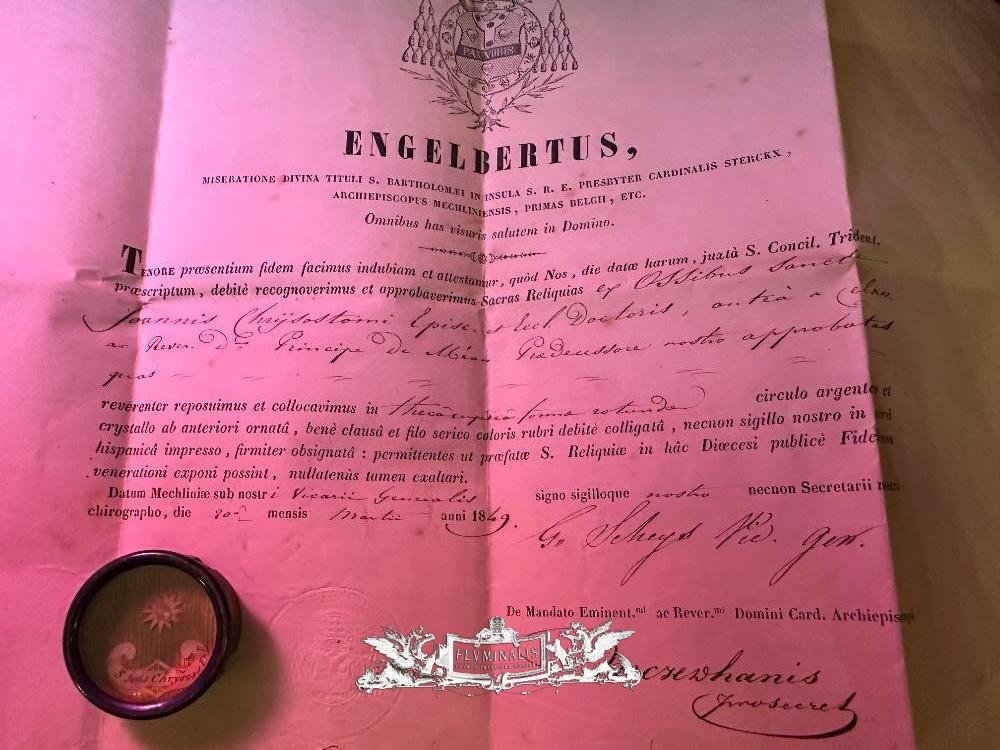 PAX VOBIS
ENGELBERTUS,
MISERATIONE DIVINA TITULI S. BARTHOLOMÆI IN INSULA S. R. E. PRESBYTER CARDINALIS STERCKX,
ARCHIEPISCOPUS MECHLINIENSIS, PRIMAS BELGII, ETC.
Omnibus has visuris salutem in Domino.
TENORE præsentium fidem facimus indubiam et attestamur, quòd Nos, die datæ harum, juxtà S. Concil. Trident.
præscriptum, debitè recognoverimus et approbaverimus Sacras Reliquias ex Ossibus Sancti
Joannis Chrÿsostomi Episc. et Eccl. Doctoris, antea a Celsis.
ac Rever. D. Principe De Méan Prædecessore nostro approbatas
quas
reverenter reposuimus et collocavimus in theca cuprea forma rotunda circulo argenteo et
crystallo ab anteriori ornatâ, benè clausâ et filo serico coloris rubri debitè colligatâ, necnon sigillo nostro in cerâ
hispanicâ impresso, firmiter obsignatâ: permittentes ut præfatæ S. Reliquiæ in hâc Diœcesi publicè Fidelium
venerationi exponi possint, nullatenùs tamen exaltari.
Datum Mechliniæ sub nostri Vicarii Generalis signo sigilloque nostro necnon Secretarii nostri
chirographo, die 20â mensis Martii anni 1849.
G. Scheys Vic. gen.
De Mandato Eminent.mi ac Rever.mi Domini Card. Archiepiscopi
prosecret
S. Jois Chrysost.
FLVMINALIS